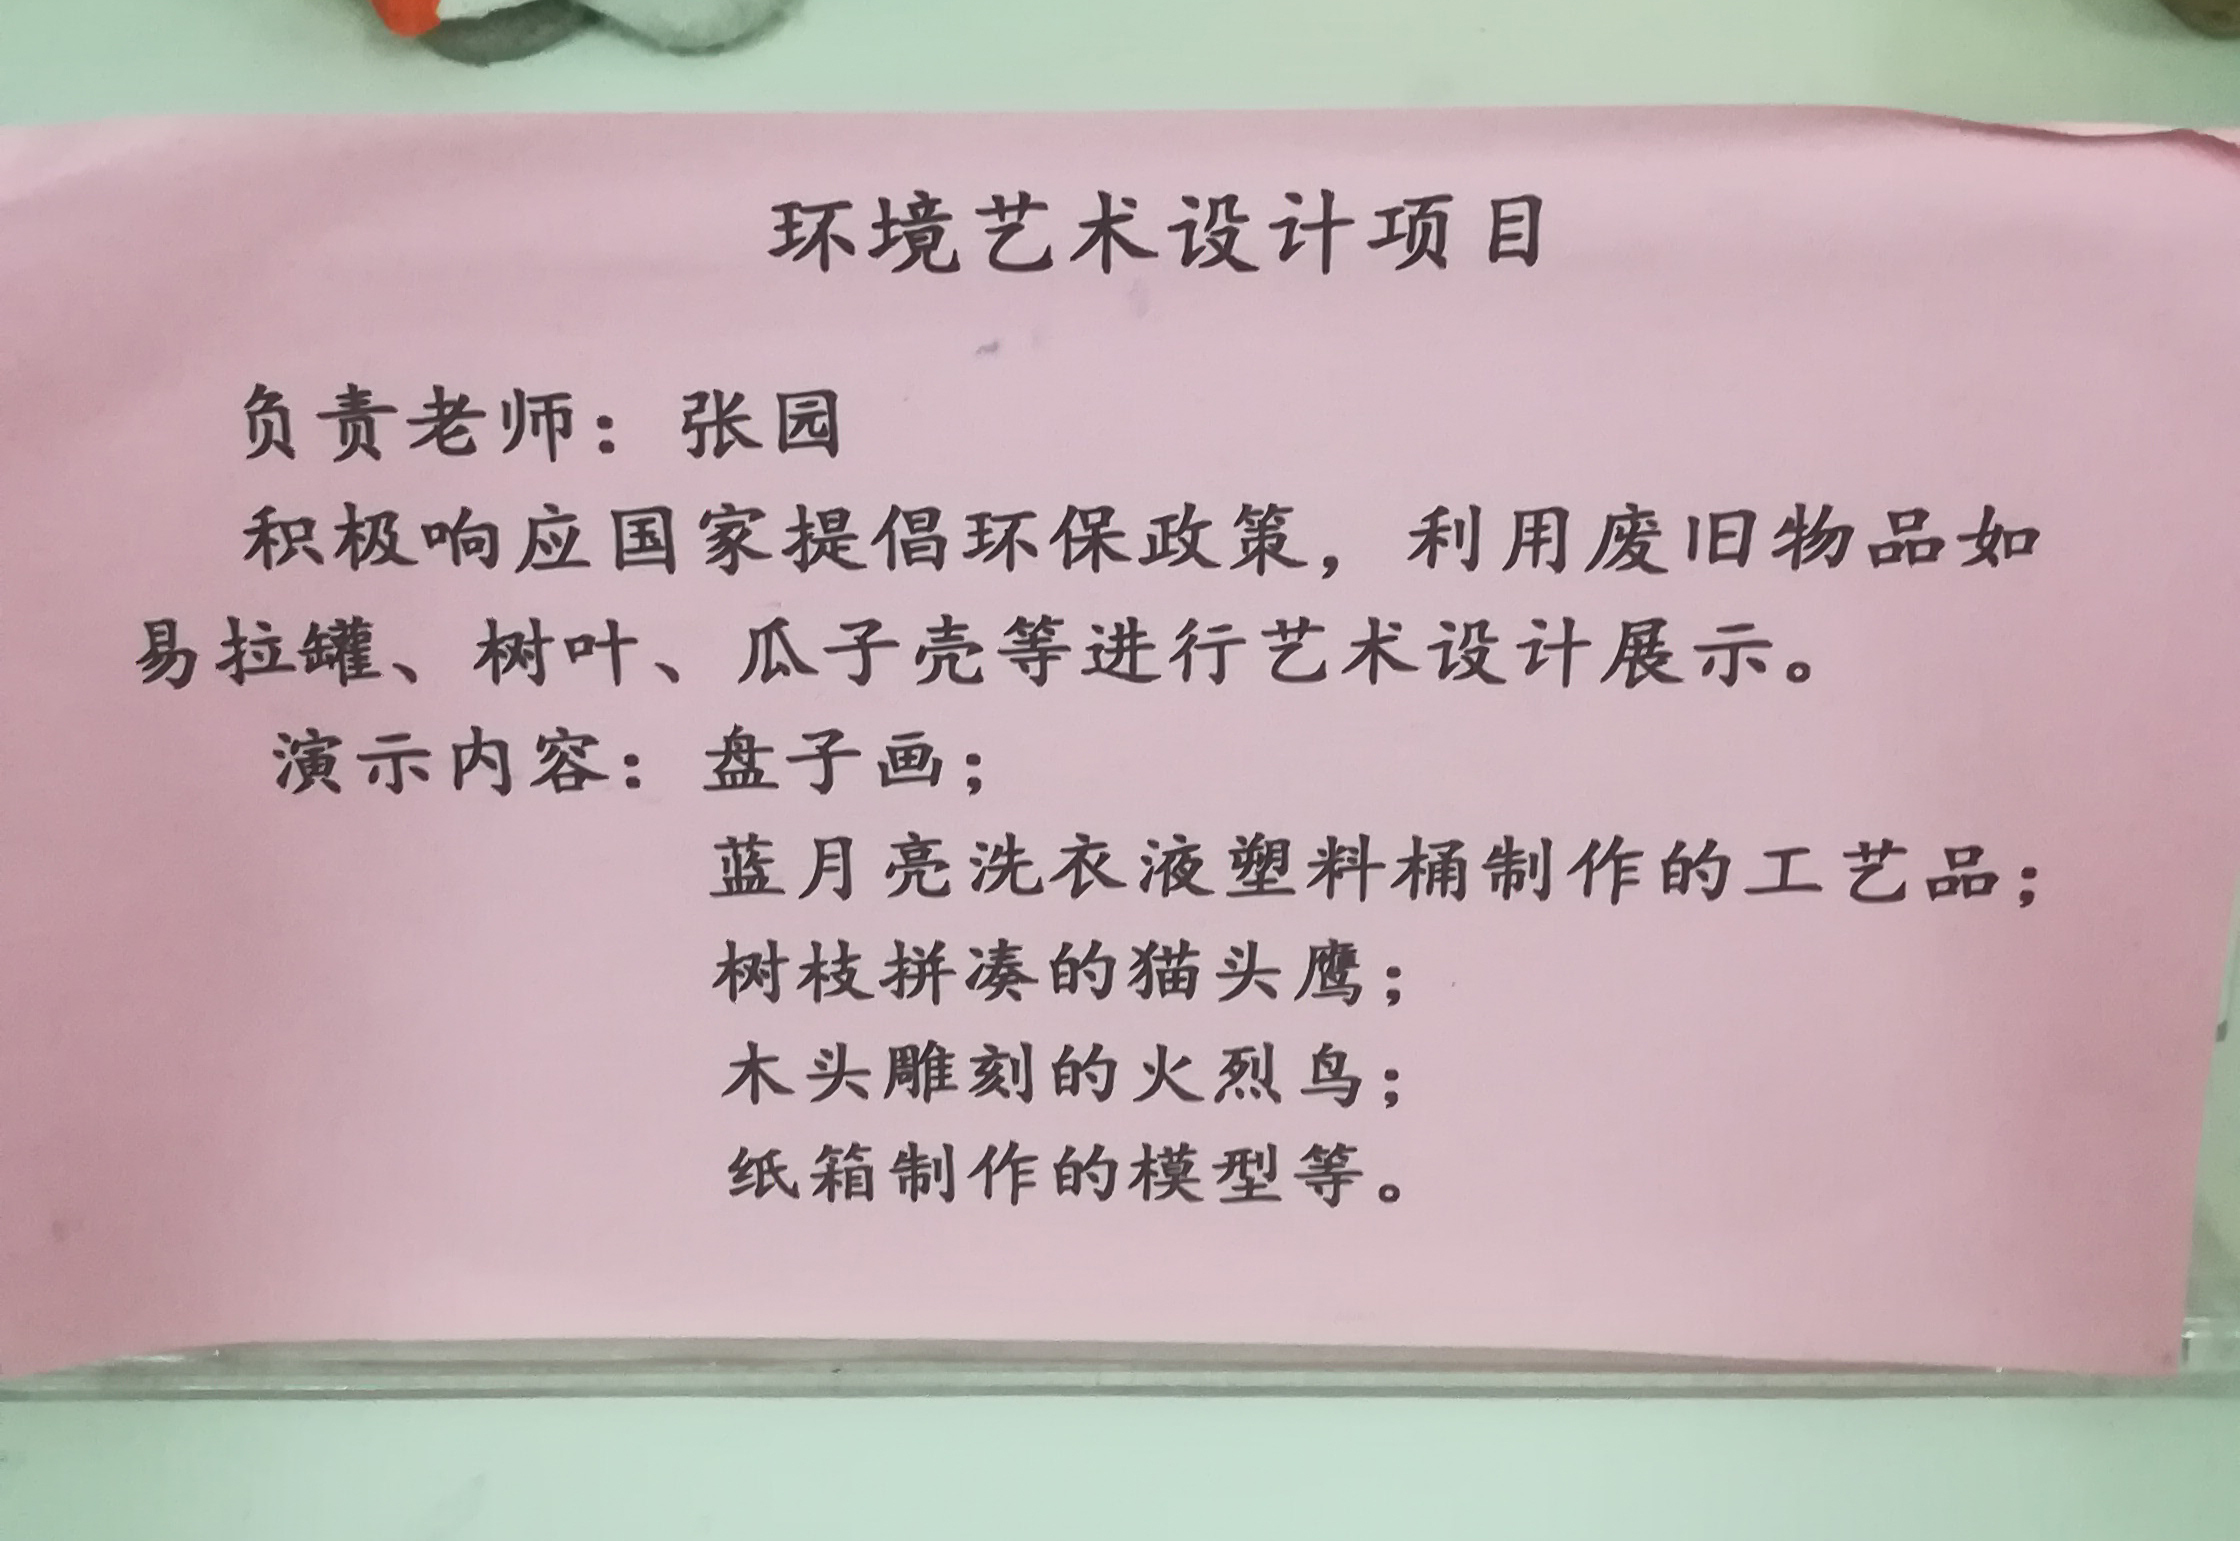 环境艺术设计项目
负责老师：张园
积极响应国家提倡环保政策，利用废旧物品如
易拉罐、树叶、瓜子壳等进行艺术设计展示。
演示内容：盘子画；
蓝月亮洗衣液塑料桶制作的工艺品；
树枝拼凑的猫头鹰；
木头雕刻的火烈鸟；
纸箱制作的模型等。